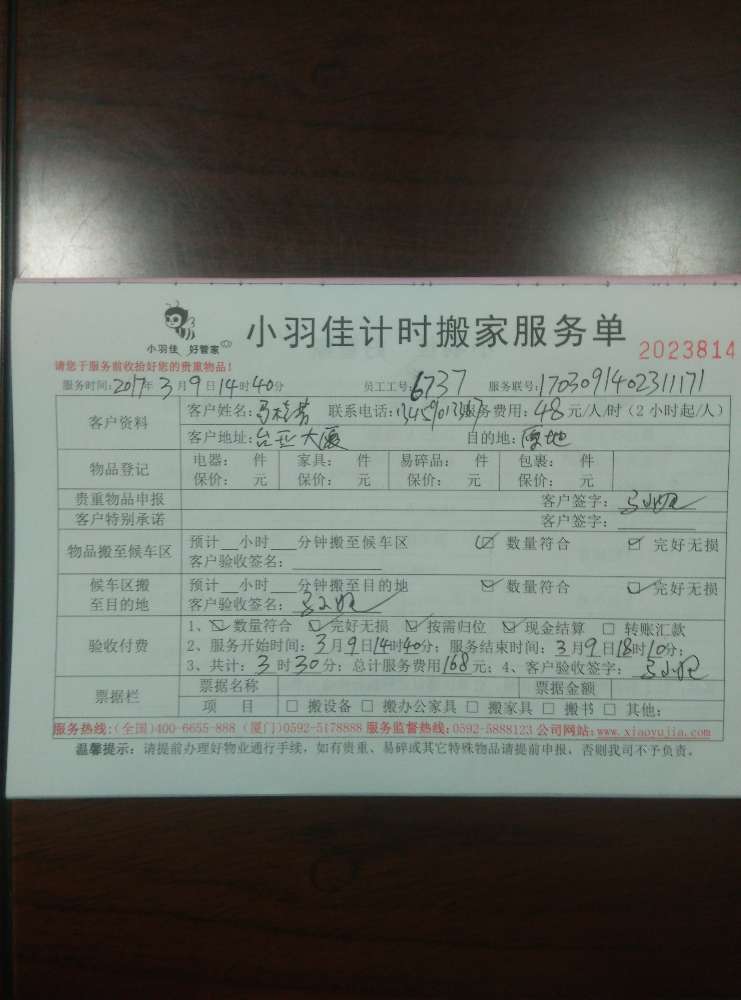 小羽佳 好管家
小羽佳计时搬家服务单
2023814
请您于服务前收拾好您的贵重物品!
服务时间:2017年3月9日14时40分 员工工号:6737 服务联号:1703091402311171
客户资料
客户姓名: 联系电话: 服务费用:48元/人/时(2小时起/人)
客户地址:台亚大厦 目的地:原地
物品登记
电器: 件 家具: 件 易碎品: 件 包裹: 件
保价: 元 保价: 元 保价: 元 保价: 元
贵重物品申报 客户签字:
客户特别承诺 客户签字:
物品搬至候车区
预计__小时___分钟搬至候车区 ☑ 数量符合 ☑ 完好无损
客户验收签名:
候车区搬
至目的地
预计__小时___分钟搬至目的地 ☑ 数量符合 ☑ 完好无损
客户验收签名:
验收付费
1、☑ 数量符合 ☑ 完好无损 ☑ 按需归位 ☑ 现金结算 □ 转账汇款
2、服务开始时间:3月9日14时40分;服务结束时间:3月9日18时10分;
3、共计:3时30分;总计服务费用168元;4、客户验收签字:
票据栏
票据名称 票据金额
项 目 □ 搬设备 □ 搬办公家具 □ 搬家具 □ 搬书 □ 其他:
服务热线:(全国)400-6655-888 (厦门)0592-5178888 服务监督热线:0592-5888123 公司网站:www.xiaoyujia.com
温馨提示:请提前办理好物业通行手续,如有贵重、易碎或其它特殊物品请提前申报,否则我司不予负责。